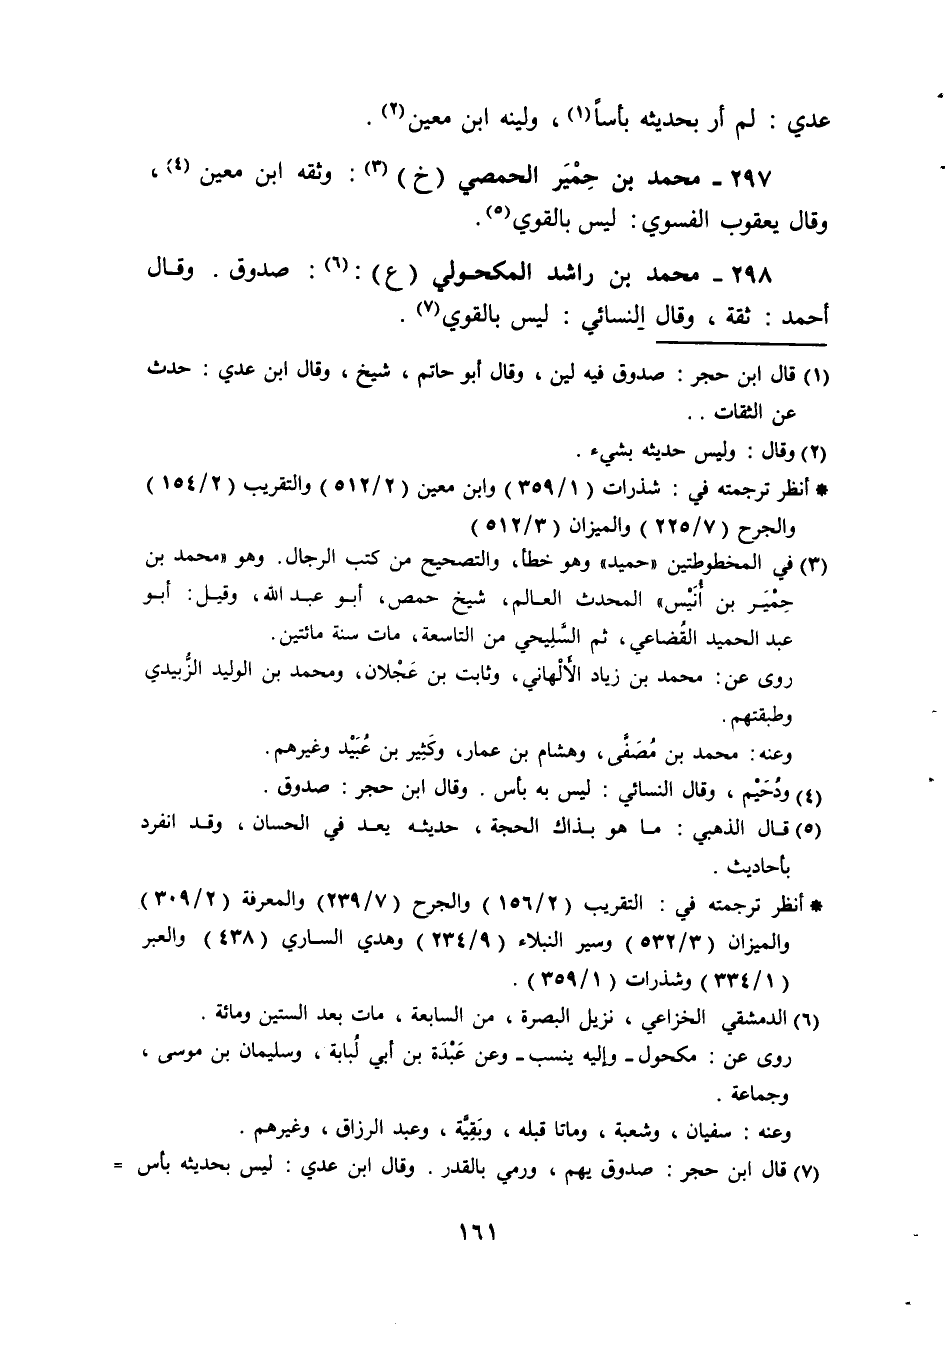 عدي : لم أر بحديثه بأساً(١) ، ولينه ابن معين(٢) .
٢٩٧ ـ محمد بن حِمْيَر الحمصي (خ)(٣) : وثقه ابن معين(٤) ،
وقال يعقوب الفسوي : ليس بالقوي(٥) .
٢٩٨ ـ محمد بن راشد المكحولي (ع) :(٦) : صدوق . وقال
أحمد : ثقة ، وقال النسائي : ليس بالقوي(٧) .
(١) قال ابن حجر : صدوق فيه لين ، وقال أبو حاتم ، شيخ ، وقال ابن عدي : حدث
عن الثقات . .
(٢) وقال : وليس حديثه بشيء .
* أنظر ترجمته في : شذرات (٣٥٩/١) وابن معين (٥١٢/٢) والتقريب (١٥٤/٢)
والجرح (٢٢٥/٧) والميزان (٥١٢/٣)
(٣) في المخطوطتين «حميد» وهو خطأ، والتصحيح من كتب الرجال. وهو «محمد بن
حِمْيَر بن أُنَيْس» المحدث العالم، شيخ حمص، أبو عبد الله، وقيل: أبو
عبد الحميد القُضاعي، ثم السَّلِيحي من التاسعة، مات سنة مائتين.
روى عن: محمد بن زياد الأَلْهاني، وثابت بن عَجْلان، ومحمد بن الوليد الزُّبيدي
وطبقتهم.
وعنه: محمد بن مُصَفَّى، وهشام بن عمار، وكَثِير بن عُبَيْد وغيرهم.
(٤) ودُحَيْم ، وقال النسائي : ليس به بأس . وقال ابن حجر : صدوق .
(٥) قال الذهبي : ما هو بذاك الحجة ، حديثه يعد في الحسان ، وقد انفرد
بأحاديث .
* أنظر ترجمته في : التقريب (١٥٦/٢) والجرح (٢٣٩/٧) والمعرفة (٣٠٩/٢)
والميزان (٥٣٢/٣) وسير النبلاء (٢٣٤/٩) وهدي الساري (٤٣٨) والعبر
(٣٣٤/١) وشذرات (٣٥٩/١) .
(٦) الدمشقي الخزاعي ، نزيل البصرة ، من السابعة ، مات بعد الستين ومائة .
روى عن : مكحول ـ وإليه ينسب ـ وعن عَبْدَة بن أبي لُبابة ، وسليمان بن موسى ،
وجماعة .
وعنه : سفيان ، وشعبة ، وماتا قبله ، وبَقِيَّة ، وعبد الرزاق ، وغيرهم .
(٧) قال ابن حجر : صدوق يهم ، ورمي بالقدر . وقال ابن عدي : ليس بحديثه بأس =
١٦١